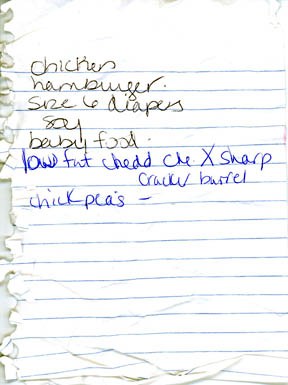 chicken
hamburger.
Size 6 diapers
soy
baby food.
low fat chedd che X sharp
Cracker barrel
chick pea's –